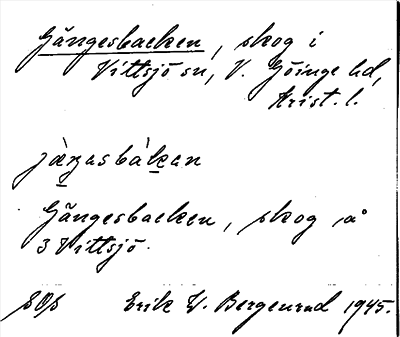 Gångesbacken, skog i
Vittsjö sn, V. Göinge hd,
Krist. l.
jàŋasbàkan
Gångesbacken, skog, å
3 Vittsjö.
SOS Erik W. Bergenrud 1945.